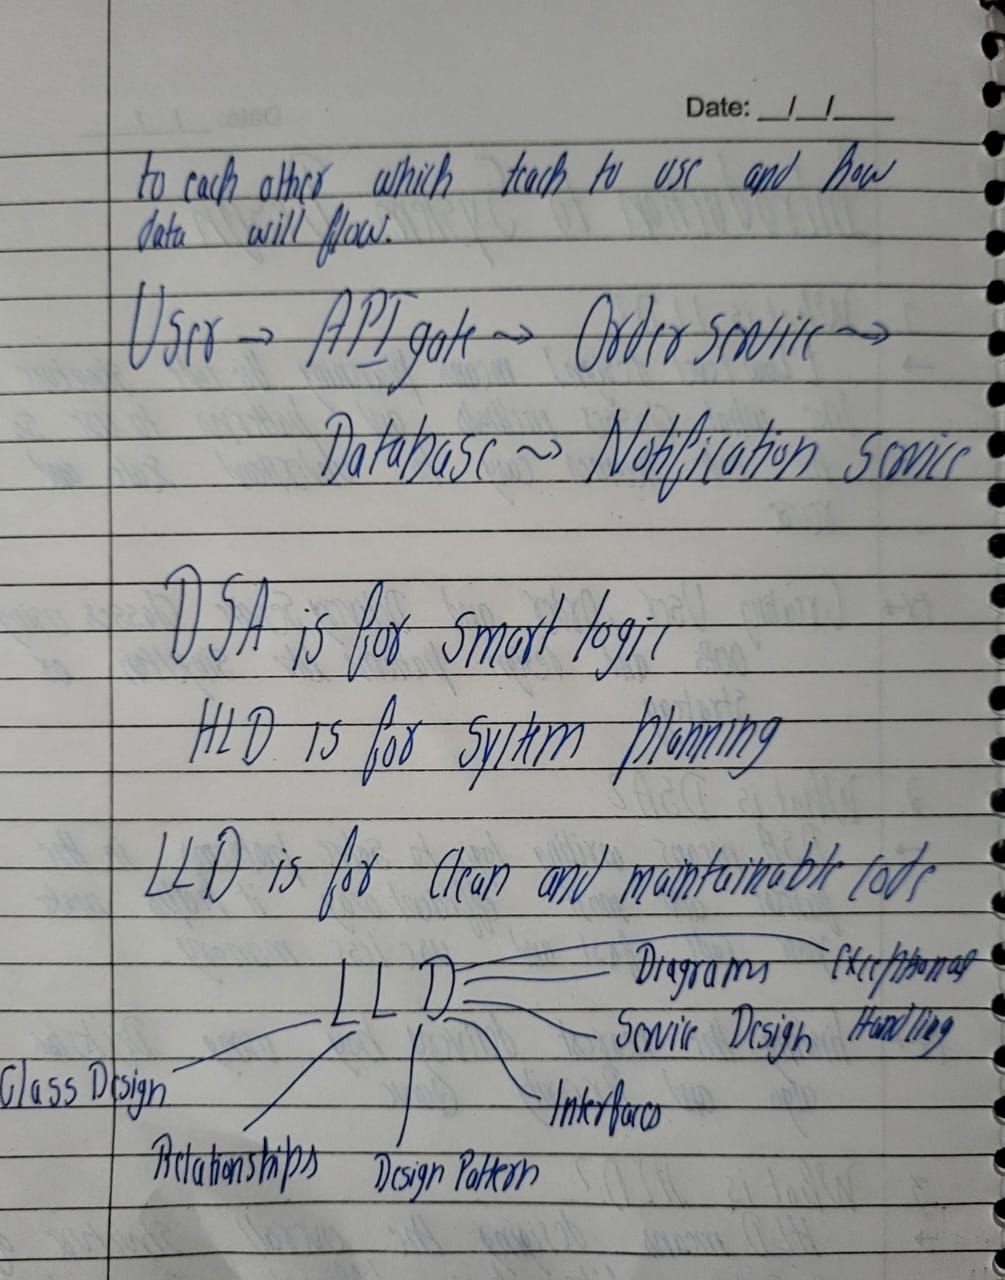 Date: __/__/____
to each other which teach to use and how
data will flow.
User → API gate → Order service →
Database → Notification service
DSA is for smart logic
HLD is for system planning
LLD is for clean and maintainable code
LLD
Diagrams
Exceptional Handling
Service Design
Class Design
Interfaces
Relationships
Design Pattern